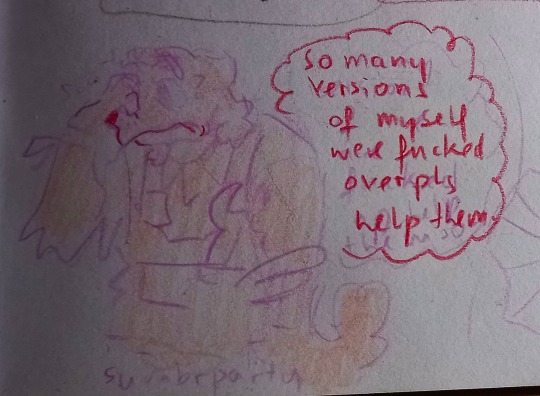 so many
versions
of myself
were fucked
over pls
help them